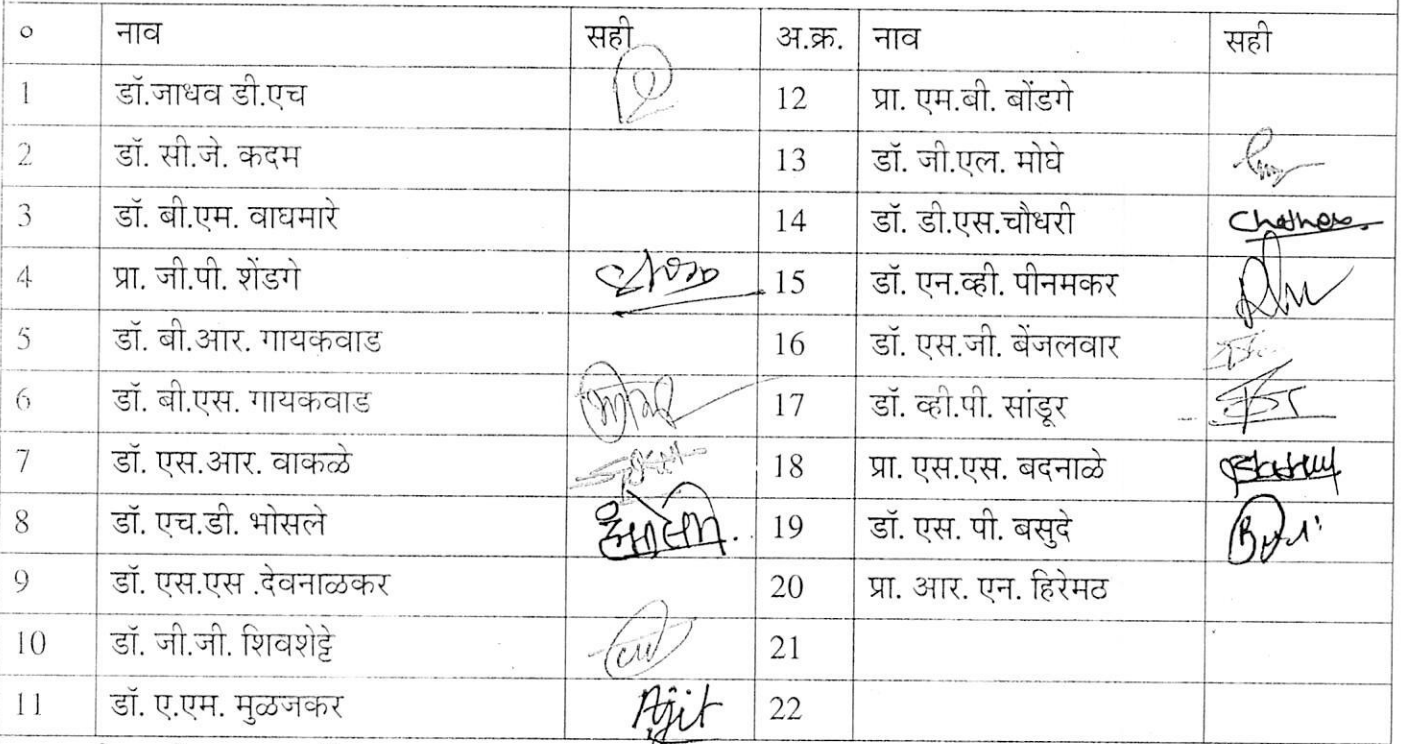 ० नाव सही अ.क्र. नाव सही
1 डॉ.जाधव डी.एच 12 प्रा. एम.बी. बोंडगे
2 डॉ. सी.जे. कदम 13 डॉ. जी.एल. मोघे
3 डॉ. बी.एम. वाघमारे 14 डॉ. डी.एस.चौधरी
4 प्रा. जी.पी. शेंडगे 15 डॉ. एन.व्ही. पीनमकर
5 डॉ. बी.आर. गायकवाड 16 डॉ. एस.जी. बेंजलवार
6 डॉ. बी.एस. गायकवाड 17 डॉ. व्ही.पी. सांडूर
7 डॉ. एस.आर. वाकळे 18 प्रा. एस.एस. बदनाळे
8 डॉ. एच.डी. भोसले 19 डॉ. एस. पी. बसुदे
9 डॉ. एस.एस .देवनाळकर 20 प्रा. आर. एन. हिरेमठ
10 डॉ. जी.जी. शिवशेट्टे 21
11 डॉ. ए.एम. मुळजकर Ajit 22